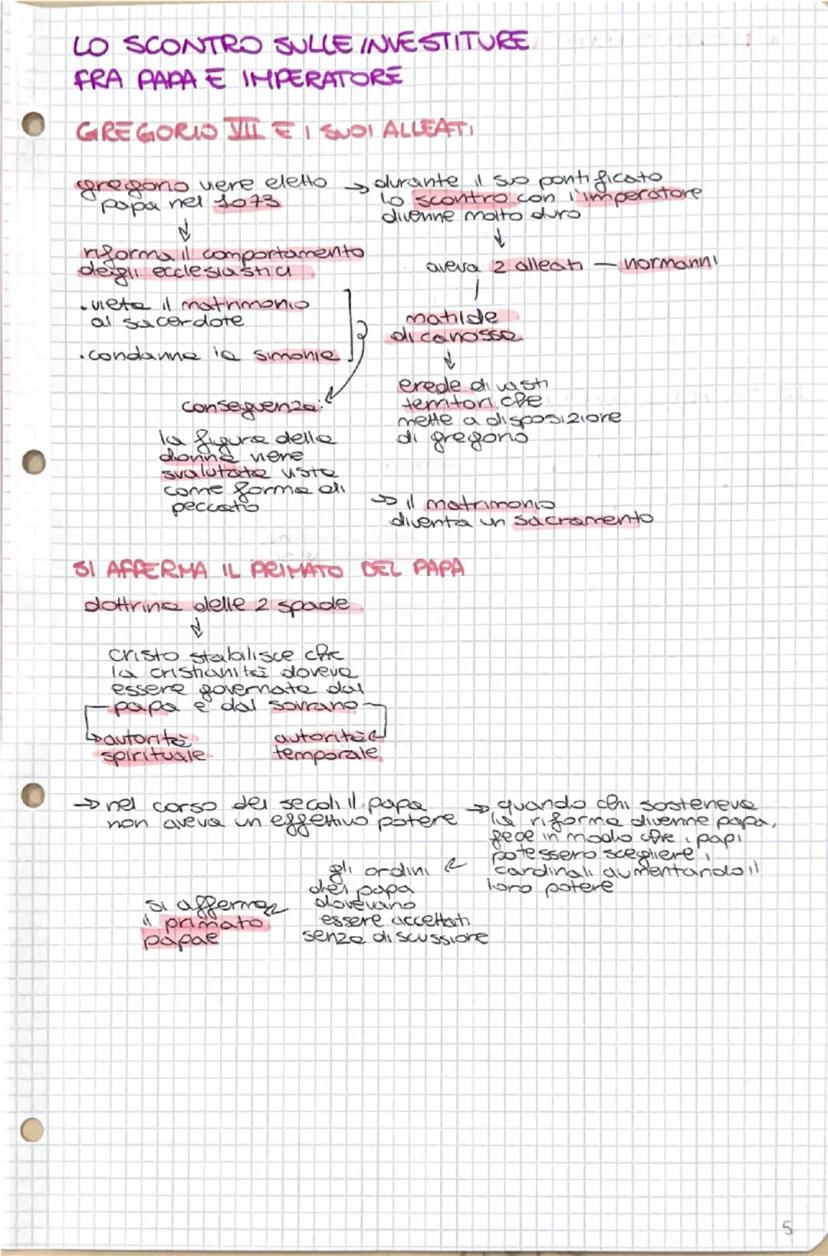 LO SCONTRO SULLE INVESTITURE
FRA PAPA E IMPERATORE
GREGORIO VII E I SUOI ALLEATI
gregorio viene eletto
papa nel 1073
→ durante il suo pontificato
lo scontro con l'imperatore
divenne molto duro
riforma il comportamento
degli ecclesiastici
• vieta il matrimonio
al sacerdote
• condanna la simonia
conseguenza:
la figura della
donna viene
svalutata vista
come forma di
peccato
aveva 2 alleati — normanni
matilde
di canossa
erede di vasti
territori che
mette a disposizione
di gregorio
→ il matrimonio
diventa un sacramento
SI AFFERMA IL PRIMATO DEL PAPA
dottrina delle 2 spade
cristo stabilisce che
la cristianità doveva
essere governata dal
papa e dal sovrano
autorità
spirituale
autorità
temporale
→ nel corso dei secoli il papa
non aveva un effettivo potere
→ quando chi sosteneva
la riforma divenne papa,
fece in modo che i papi
potessero scegliere i
cardinali aumentando il
loro potere
gli ordini
del papa
dovevano
essere accettati
senza discussione
si afferma
il primato
papae
5